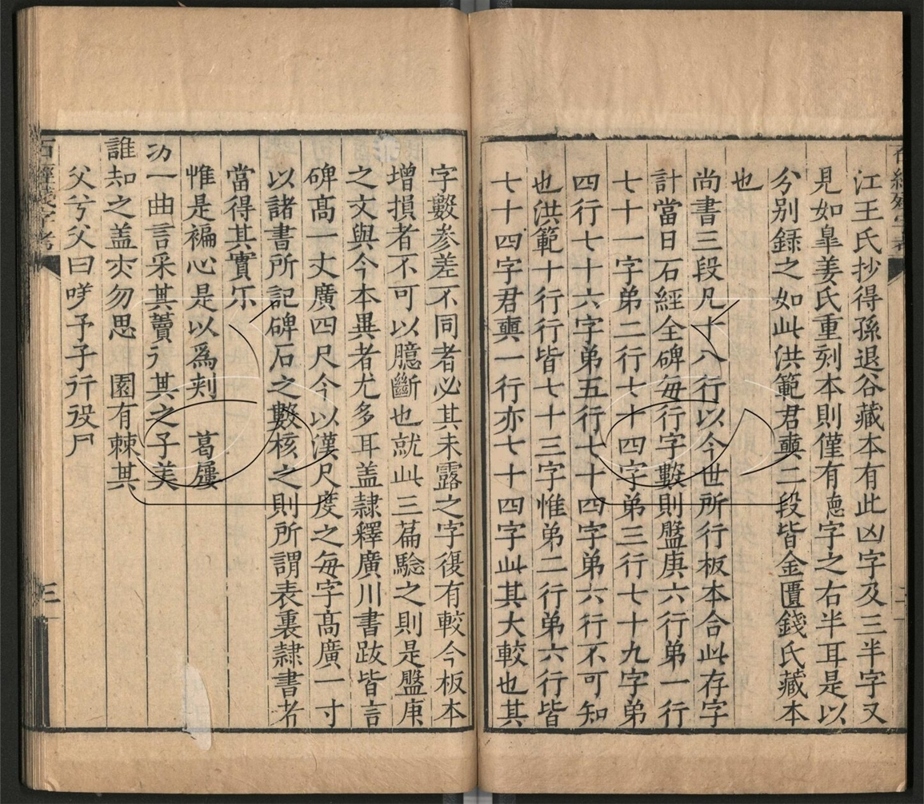 江王氏抄得孫退谷藏本有此凶字及三半字又
見如臯姜氏重刻本則僅有悳字之右半耳是以
分別録之如此洪範君奭二段皆金匱錢氏藏本
也
尚書三段凡十八行以今世所行板本合此存字
計當日石經全碑每行字數則盤庚六行弟一行
七十一字弟二行七十四字弟三行七十九字弟
四行七十六字弟五行七十四字弟六行不可知
也洪範十行行皆七十三字惟弟二行弟六行皆
七十四字君奭一行亦七十四字此其大較也其
字數参差不同者必其未露之字復有較今板本
增損者不可以臆斷也就此三篇驗之則是盤庚
之文與今本異者尤多耳盖隷釋廣川書跋皆言
碑髙一丈廣四尺今以漢尺度之每字髙廣一寸
以諸書所記碑石之數核之則所謂表裏隷書者
當得其實尓
惟是褊心是以爲刾　葛屨
㓛一曲言采其藚彳其之子美
誰知之盖亦勿思　園有棘其
父兮父曰嗟予子行役尸
石經殘字考
三